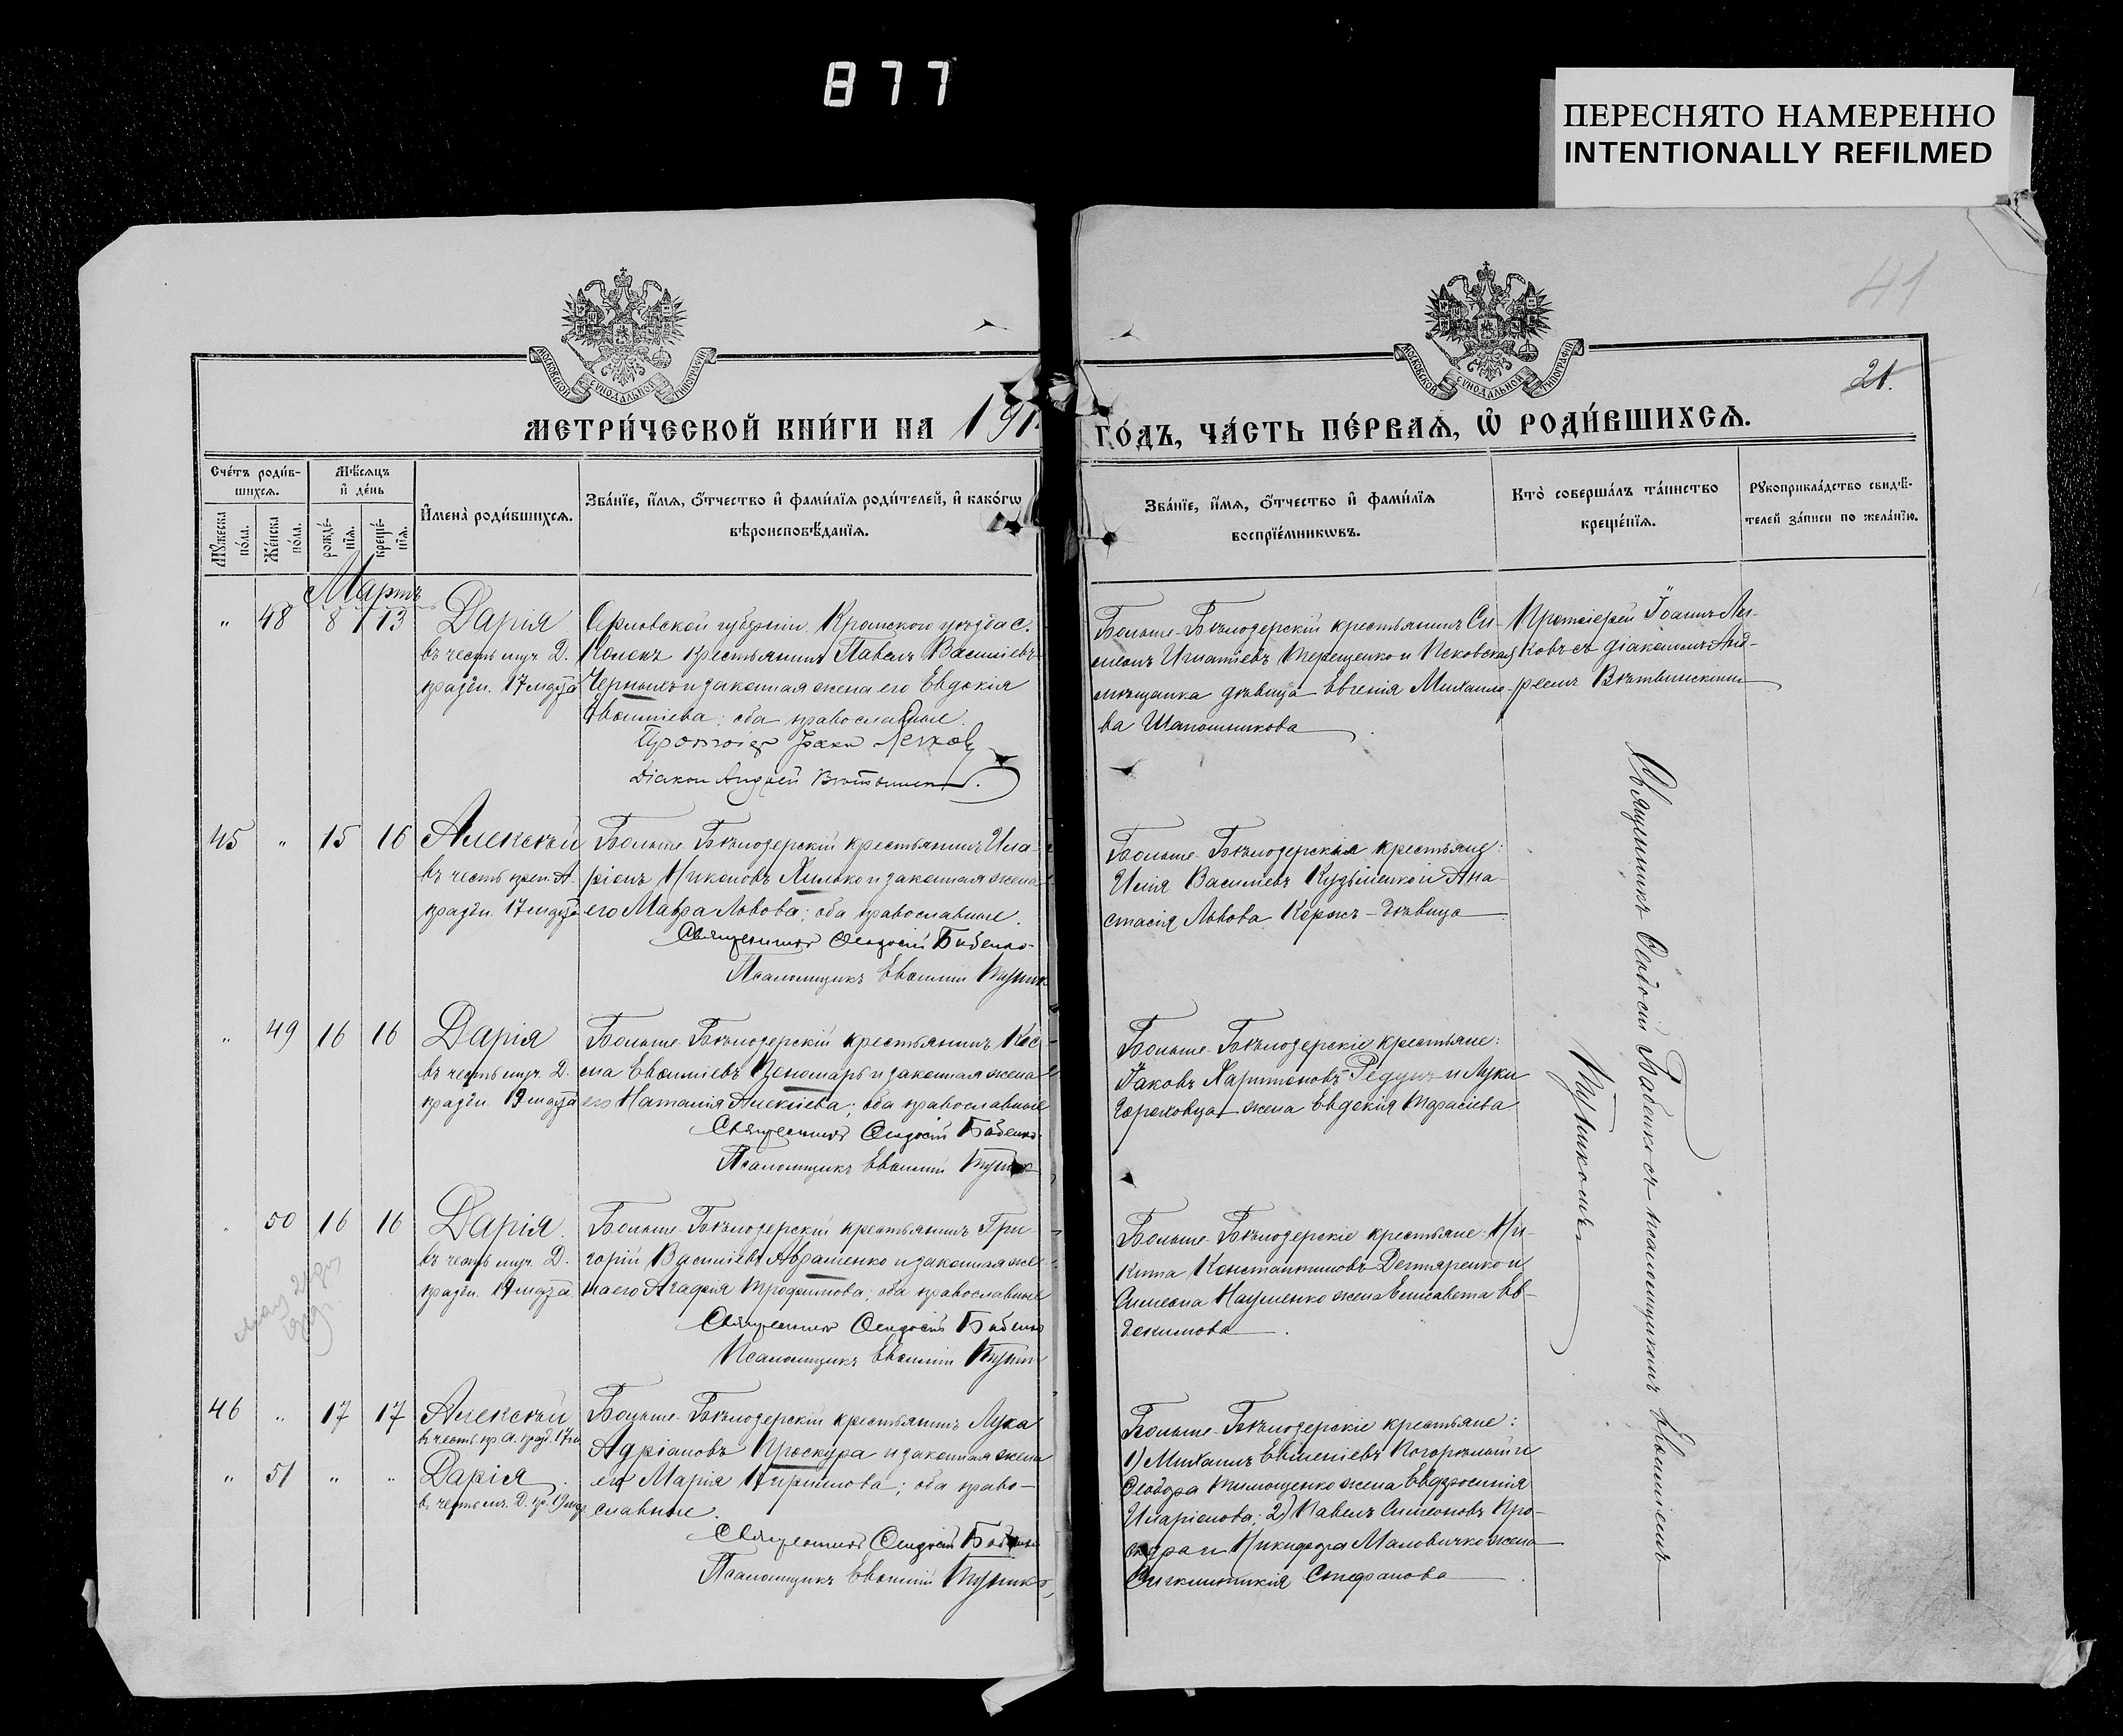 877
ПЕРЕСНЯТО НАМЕРЕННО
INTENTIONALLY REFILMED
41
МОСКОВСКОЙ СѴНОДАЛЬНОЙ ТИПОГРАФІИ
МОСКОВСКОЙ СѴНОДАЛЬНОЙ ТИПОГРАФІИ
21.
МЕТРИ́ЧЕСКОЙ КНИ́ГИ НА 191
ГО́ДЪ, ЧА́СТЬ ПЕ́РВАѦ, Ѽ РОДИ́ВШИХСѦ.
Сче́тъ роди́в-
шихсѧ.
Мѣ́сѧцъ
и҆ де́нь
Мꙋ́жеска по́ла.
Же́нска по́ла.
рожде́-нїѧ.
креще́-нїѧ.
И҆мена̀ роди́вшихсѧ.
Зва́нїе, и҆́мѧ, ѻ҆́тчество и҆ фами́лїѧ роди́телей, и҆ како́гѡ
вѣроисповѣ́данїѧ.
Зва́нїе, и҆́мѧ, ѻ҆́тчество и҆ фами́лїѧ
воспрїе́мникѡвъ.
Кто̀ соверша́лъ та́инство
креще́нїѧ.
Рꙋкоприкла́дство свидѣ́-
телей за́писи по жела́нїю.
Мартъ
„ 48 8 13 Дарія
въ честь муч. Д.
празд. 19 марта
Орловской губерніи, Кромскаго уѣзда с.
крестьянинъ Павелъ Васильевъ
Черныхъ и законная жена его Евдокія
Евѳиміева; оба православные.
Діакон Андрей
Больше-Бѣлозерскій крестьянинъ Си-
меонъ Игнатіевъ Терещенко и Псковская
мѣщанка дѣвица Евгенія Михаило-
ва Шапошникова
Протоіерей Іоаннъ
съ діакономъ Анд-
реемъ
45 „ 15 16 Алексѣй
въ честь преп. А.
празд. 17 марта
Больше-Бѣлозерскій крестьянинъ Ила-
ріонъ Никоновъ Хилько и законная жена
его Мавра Львова; оба православные.
Священникъ Ѳеодосій Бабенко
Псаломщикъ Евѳимій
Больше-Бѣлозерскія крестьяне:
Илія Васильевъ Кузьменко и Ана-
стасія Львова Коржъ - дѣвица
„ 49 16 16 Дарія
въ честь муч. Д.
празд. 19 марта
Больше-Бѣлозерскій крестьянинъ Кос-
ма Евѳиміевъ Пономарь и законная жена
его Наталія Алексіева; оба православные
Священникъ Ѳеодосій Бабенко
Псаломщикъ Евѳимій
Больше-Бѣлозерскіе крестьяне:
Іаковъ Харитоновъ Редунъ и Луки
Гороховца жена Евдокія Тарасіева
50 16 16 Дарія.
въ честь муч. Д.
празд. 19 марта
Больше-Бѣлозерскій крестьянинъ Гри-
горій Васильевъ Авраменко и законная же-
на его Агафія Трофимова; оба православные
Священникъ Ѳеодосій Бабенко
Псаломщикъ Евѳимій
Больше-Бѣлозерскіе крестьяне: Ни-
кита Константиновъ Дегтяренко и
Симеона Науменко жена Елисавета Ев-
докимова
46 „ 17 17 Алексѣй
въ честь пр. А. празд. 17 м.
„ 51 „ „ Дарія.
въ честь муч. Д. пр. 19 мар.
Больше-Бѣлозерскій крестьянинъ Лука
Адріановъ Проскура и законная жена
его Марія Кириллова; оба право-
славные.
Священникъ Ѳеодосій Бабенко
Псаломщикъ Евѳимій
Больше-Бѣлозерскіе крестьяне:
1) Михаилъ Евѳиміевъ Погорѣлый и
Ѳеодора Тимощенко жена Евфросинія
Иларіонова; 2) Павелъ Симеоновъ Про-
скура и Никифора Маловичко жена
Синклитикія Стефанова
Священникъ Ѳеодосій Бабенко съ псаломщикомъ Евѳиміемъ